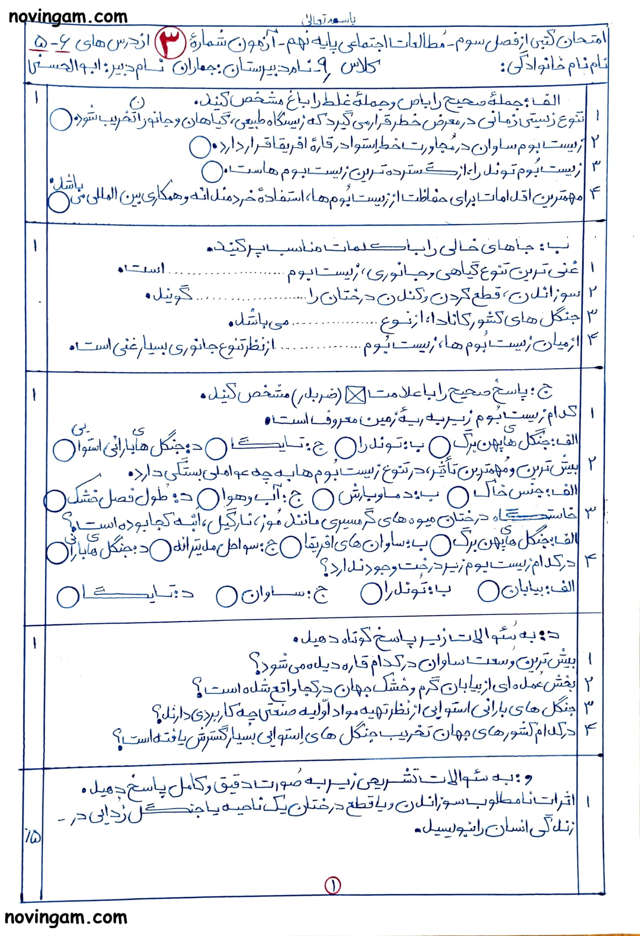 novingam.com
باسمه تعالی
امتحان کتبی از فصل سوم - مطالعات اجتماعی پایه نهم - آزمون شمارهٔ ۳ از درس های ۶-۵
نام نام خانوادگی: کلاس ۹ نام دبیرستان: جماران نام دبیر: ابوالحسنی
الف: جملهٔ صحیح را با ص و جملهٔ غلط را با غ مشخص کنید. ۱
۱ تنوع زیستی زمانی در معرض خطر قرار می گیرد که زیستگاه طبیعی، گیاهان و جانوران تخریب شود.
۲ زیست بوم ساوان در مجاورت خط استوا در قارهٔ افریقا قرار دارد.
۳ زیست بوم توندرا، از گسترده ترین زیست بوم هاست.
۴ مهمترین اقدامات برای حفاظت از زیست بوم ها، استفادهٔ خردمندانه و همکاری بین المللی می باشد.
ب: جاهای خالی را با کلمات مناسب پر کنید. ۱
۱ غنی ترین تنوع گیاهی و جانوری، زیست بوم .................... است.
۲ سوزاندن، قطع کردن و کندن درختان را .................... گویند.
۳ جنگل های کشور کانادا، از نوع ............... می باشد.
۴ از میان زیست بوم ها، زیست بوم ............... از نظر تنوع جانوری بسیار غنی است.
ج: پاسخ صحیح را با علامت ☒ (ضربدر) مشخص کنید. ۱
۱ کدام زیست بوم زیر به ریهٔ زمین معروف است.
الف: جنگل های پهن برگ ب: توندرا ج: تایگا د: جنگل های بارانی استوایی
۲ بیش ترین و مهمترین تأثیر، در تنوع زیست بوم ها به چه عواملی بستگی دارد.
الف: جنس خاک ب: دما و بارش ج: آب و هوا د: طول فصل خشک
۳ خاستگاه درختان میوه های گرمسیری مانند موز، نارگیل، انبه کجا بوده است؟
الف: جنگل های پهن برگ ب: ساوان های افریقا ج: سواحل مدیترانه د: جنگل های بارانی
۴ در کدام زیست بوم زیر درخت وجود ندارد؟
الف: بیابان ب: توندرا ج: ساوان د: تایگا
د: به سئوالات زیر پاسخ کوتاه دهید. ۱
۱ بیش ترین وسعت ساوان در کدام قاره دیده می شود؟
۲ بخش عمده ای از بیابان گرم و خشک جهان در کجا واقع شده است؟
۳ جنگل های بارانی استوایی از نظر تهیه مواد اولیه صنعتی چه کاربردی دارند؟
۴ در کدام کشورهای جهان تخریب جنگل های استوایی بسیار گسترش یافته است؟
و: به سئوالات تشریحی زیر به صورت دقیق و کامل پاسخ دهید.
۱ اثرات نامطلوب سوزاندن و یا قطع درختان یک ناحیه یا جنگل زدایی در -
زندگی انسان را بنویسید. ۱/۵
۱
novingam.com